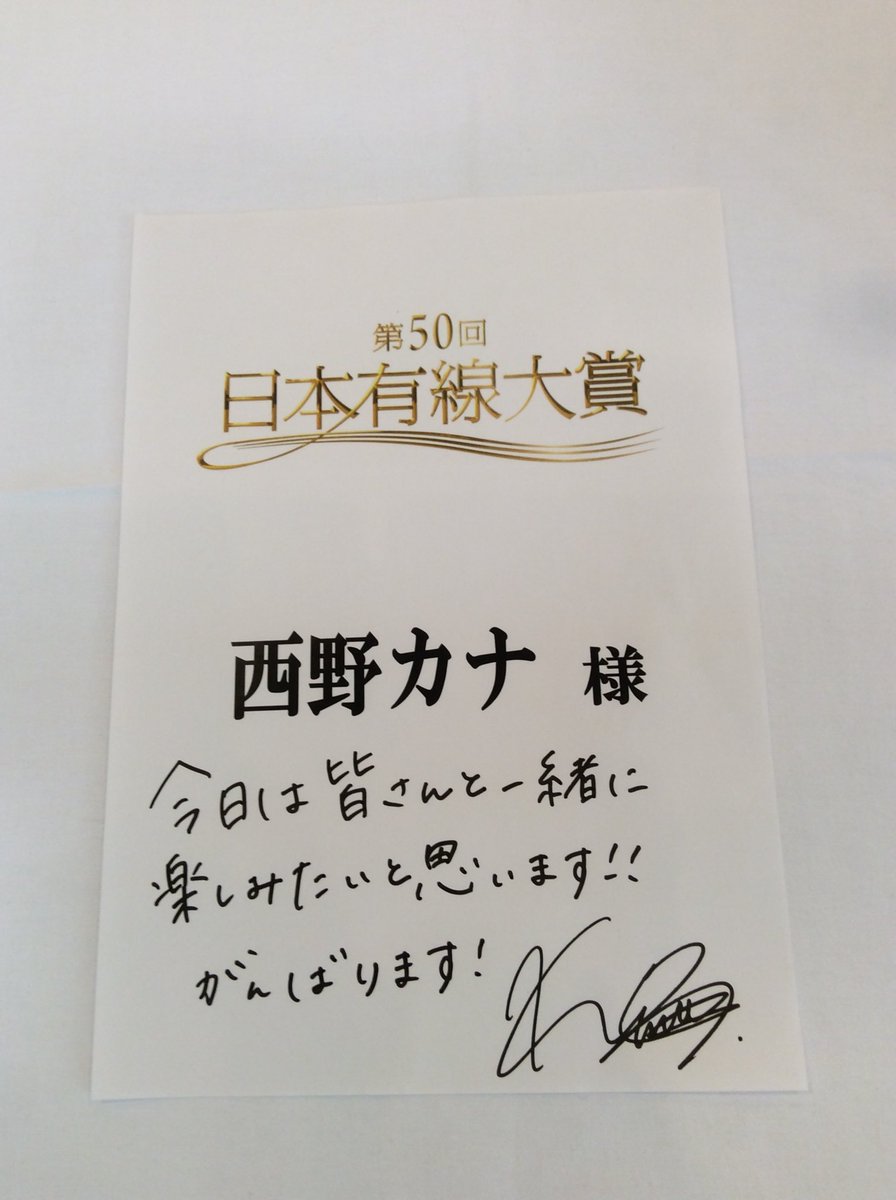 第50回
日本有線大賞
西野カナ 様
今日は皆さんと一緒に
楽しみたいと思います!!
がんばります!